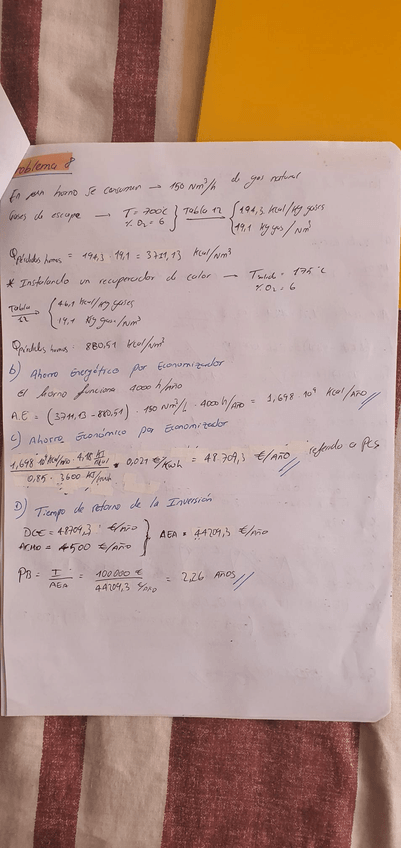 Problema 8
En un horno se consumen → 150 Nm³/h de gas natural
Gases de escape → T = 700°C % O₂ = 6 } Tabla 12 → { 194,3 Kcal/Kg gases
19,1 Kg gas/Nm³
Qpérdidas humos = 194,3 · 19,1 = 3711,13 Kcal/Nm³
* Instalando un recuperador de calor → Tsalida = 175°C
% O₂ = 6
Tabla 12 → { 46,1 Kcal/Kg gases
19,1 Kg gas/Nm³
Qpérdidas humos = 880,51 Kcal/Nm³
b) Ahorro Energético por Economizador
el horno funciona 4000 h/año
A.E = (3711,13 - 880,51) · 150 Nm³/h · 4000 h/año = 1,698·10⁹ Kcal/año
C) Ahorro Económico por Economizador
1,698·10⁹ Kcal/año · 4,18 KJ/Kcal / 0,85 · 3600 KJ/Kwh · 0,021 €/Kwh = 48.709,3 €/año referido a PCS
D) Tiempo de retorno de la Inversión
DCE = 48709,3 €/año
= 4500 €/año } AEA = 44209,3 €/año
PB = I/AEA = 100000 €/44209,3 €/año = 2,26 Años